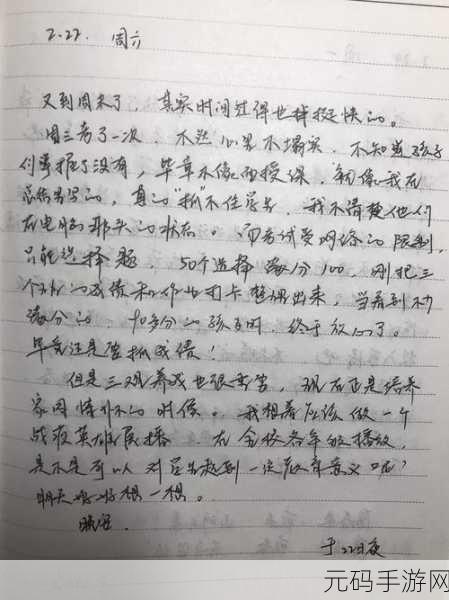 2.22. 周六
又到周末了，其实时间过得也挺快的。
周三考了一次，不然心里不塌实，不知道孩子
们掌握了没有，毕竟不像面授课，勉强我在
的，真的“抓”不住学生，我不清楚他们
在电脑那头的状态。而考试受网络的限制，
只能选择题，50个选择满分100，刚把三
个班的成绩和作业打卡整理出来，当看到不少
满分的、90多分的孩子时，终于放心了。
毕竟还是要抓成绩！
但是三观养成也很重要，现在正是培养
家国情怀的时候。我想着应该做一个
战疫英雄展播 在全校各年级播放，
是不是可以对学生起到一定教育意义呢？
明天好好想一想。
晚安.
于22日夜
元码手游网